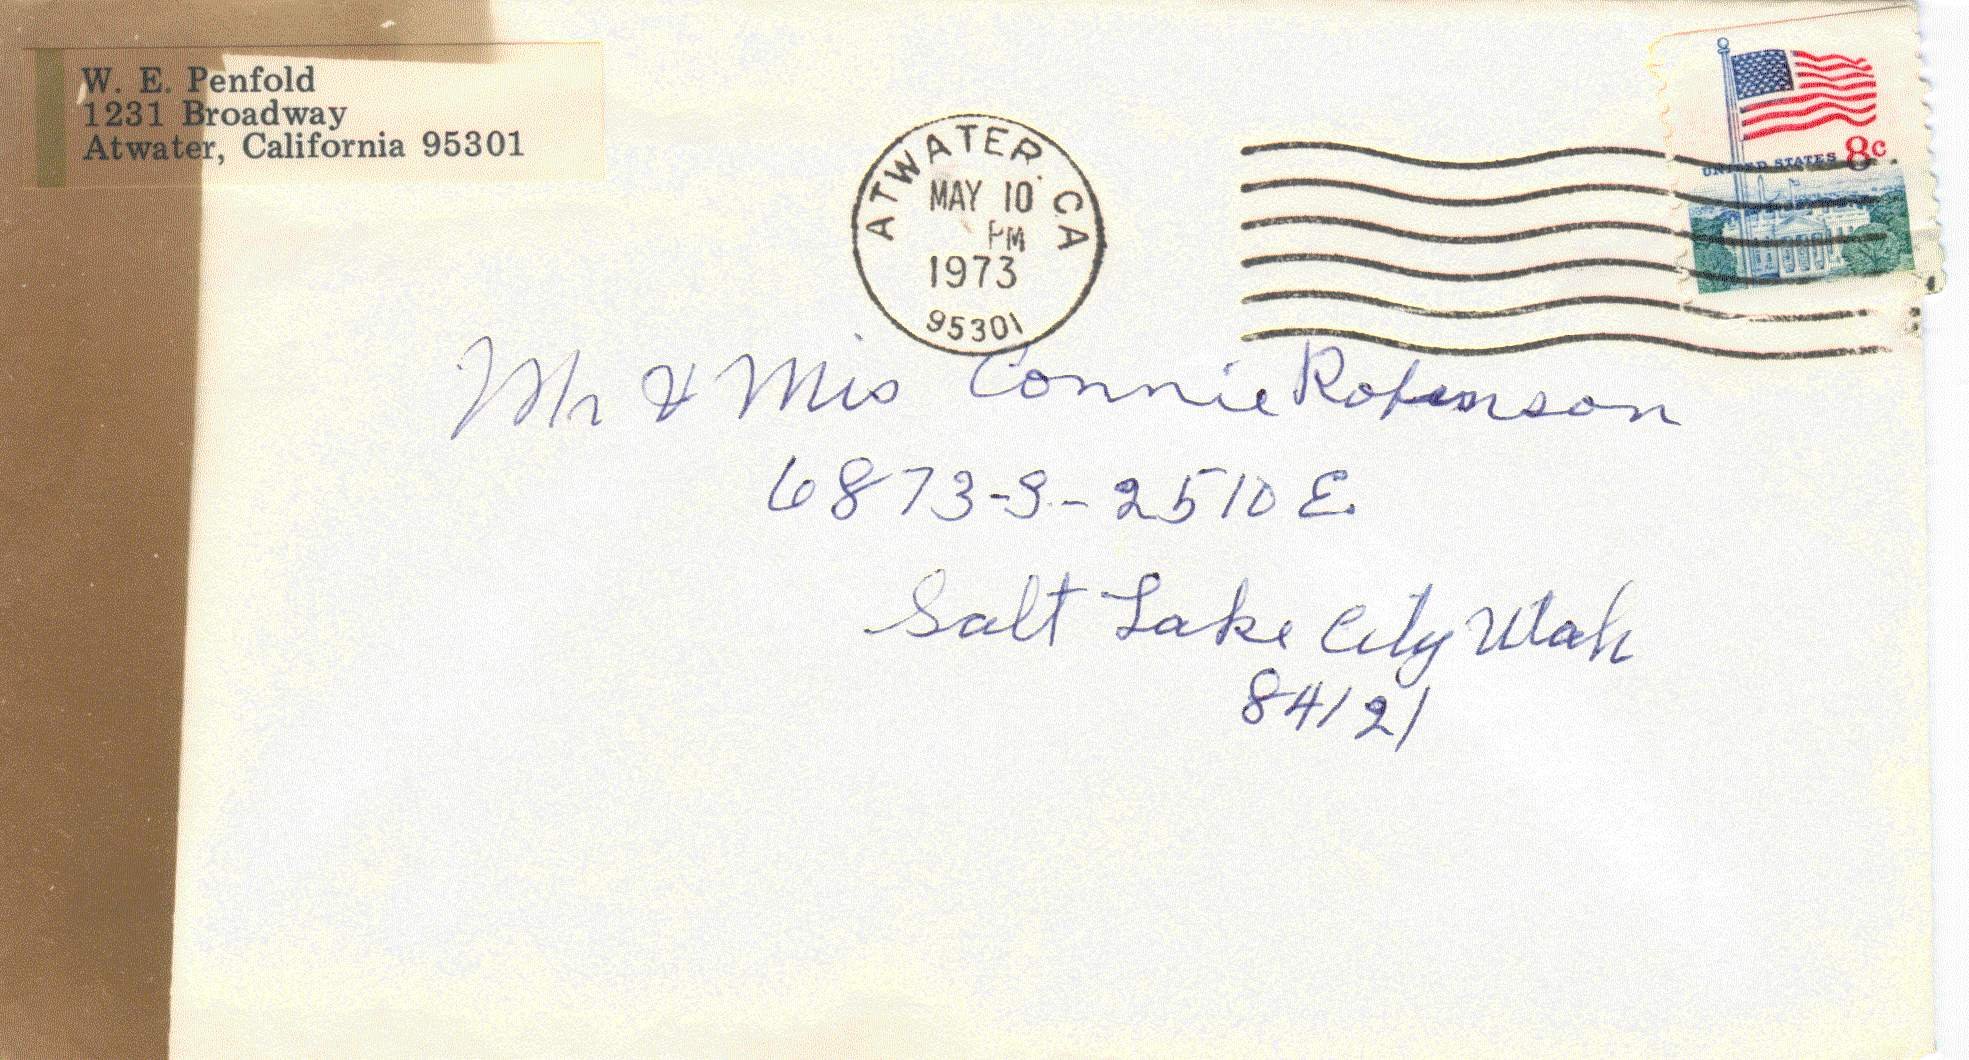 W. E. Penfold
1231 Broadway
Atwater, California 95301
ATWATER CA
MAY 10
PM
1973
95301
UNITED STATES 8c
Mr & Mrs Connie Robinson
6873-S-2510 E.
Salt Lake City Utah
84121